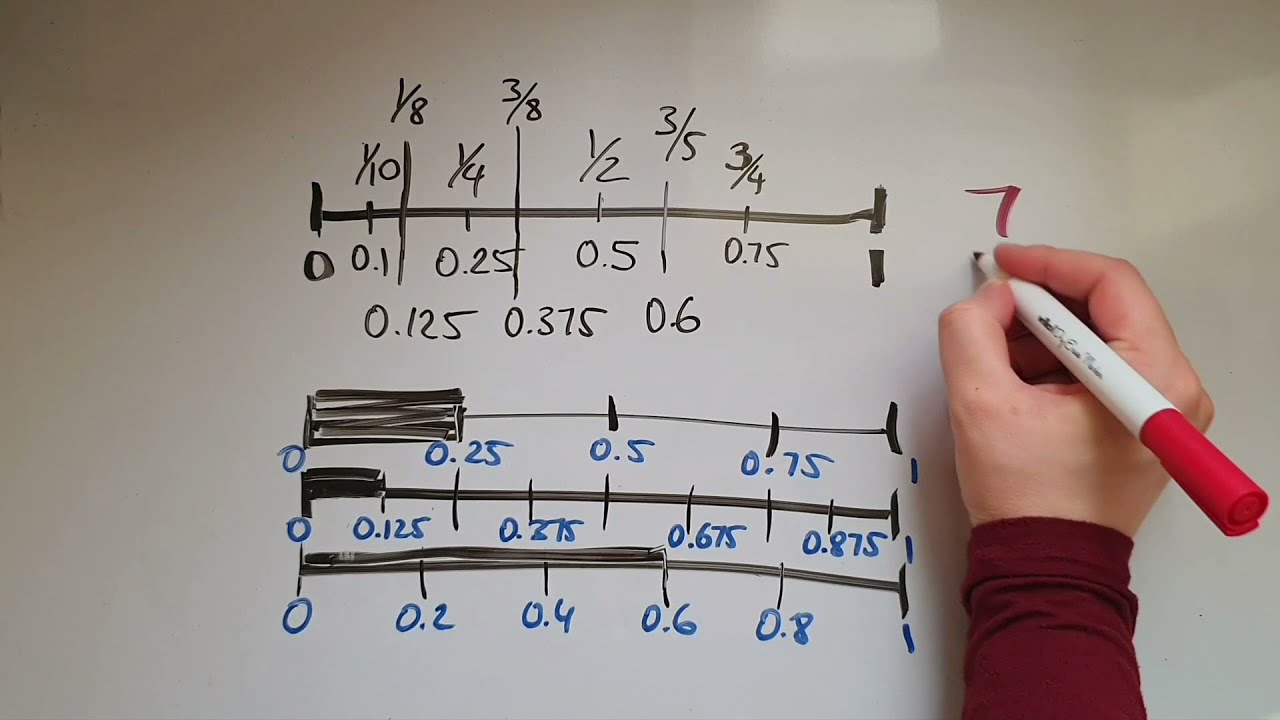 1/8 3/8
1/10 1/4 1/2 3/5 3/4
0 0.1 0.25 0.5 0.75 1
0.125 0.375 0.6
7
0 0.25 0.5 0.75 1
0 0.125 0.375 0.675 0.875 1
0 0.2 0.4 0.6 0.8 1